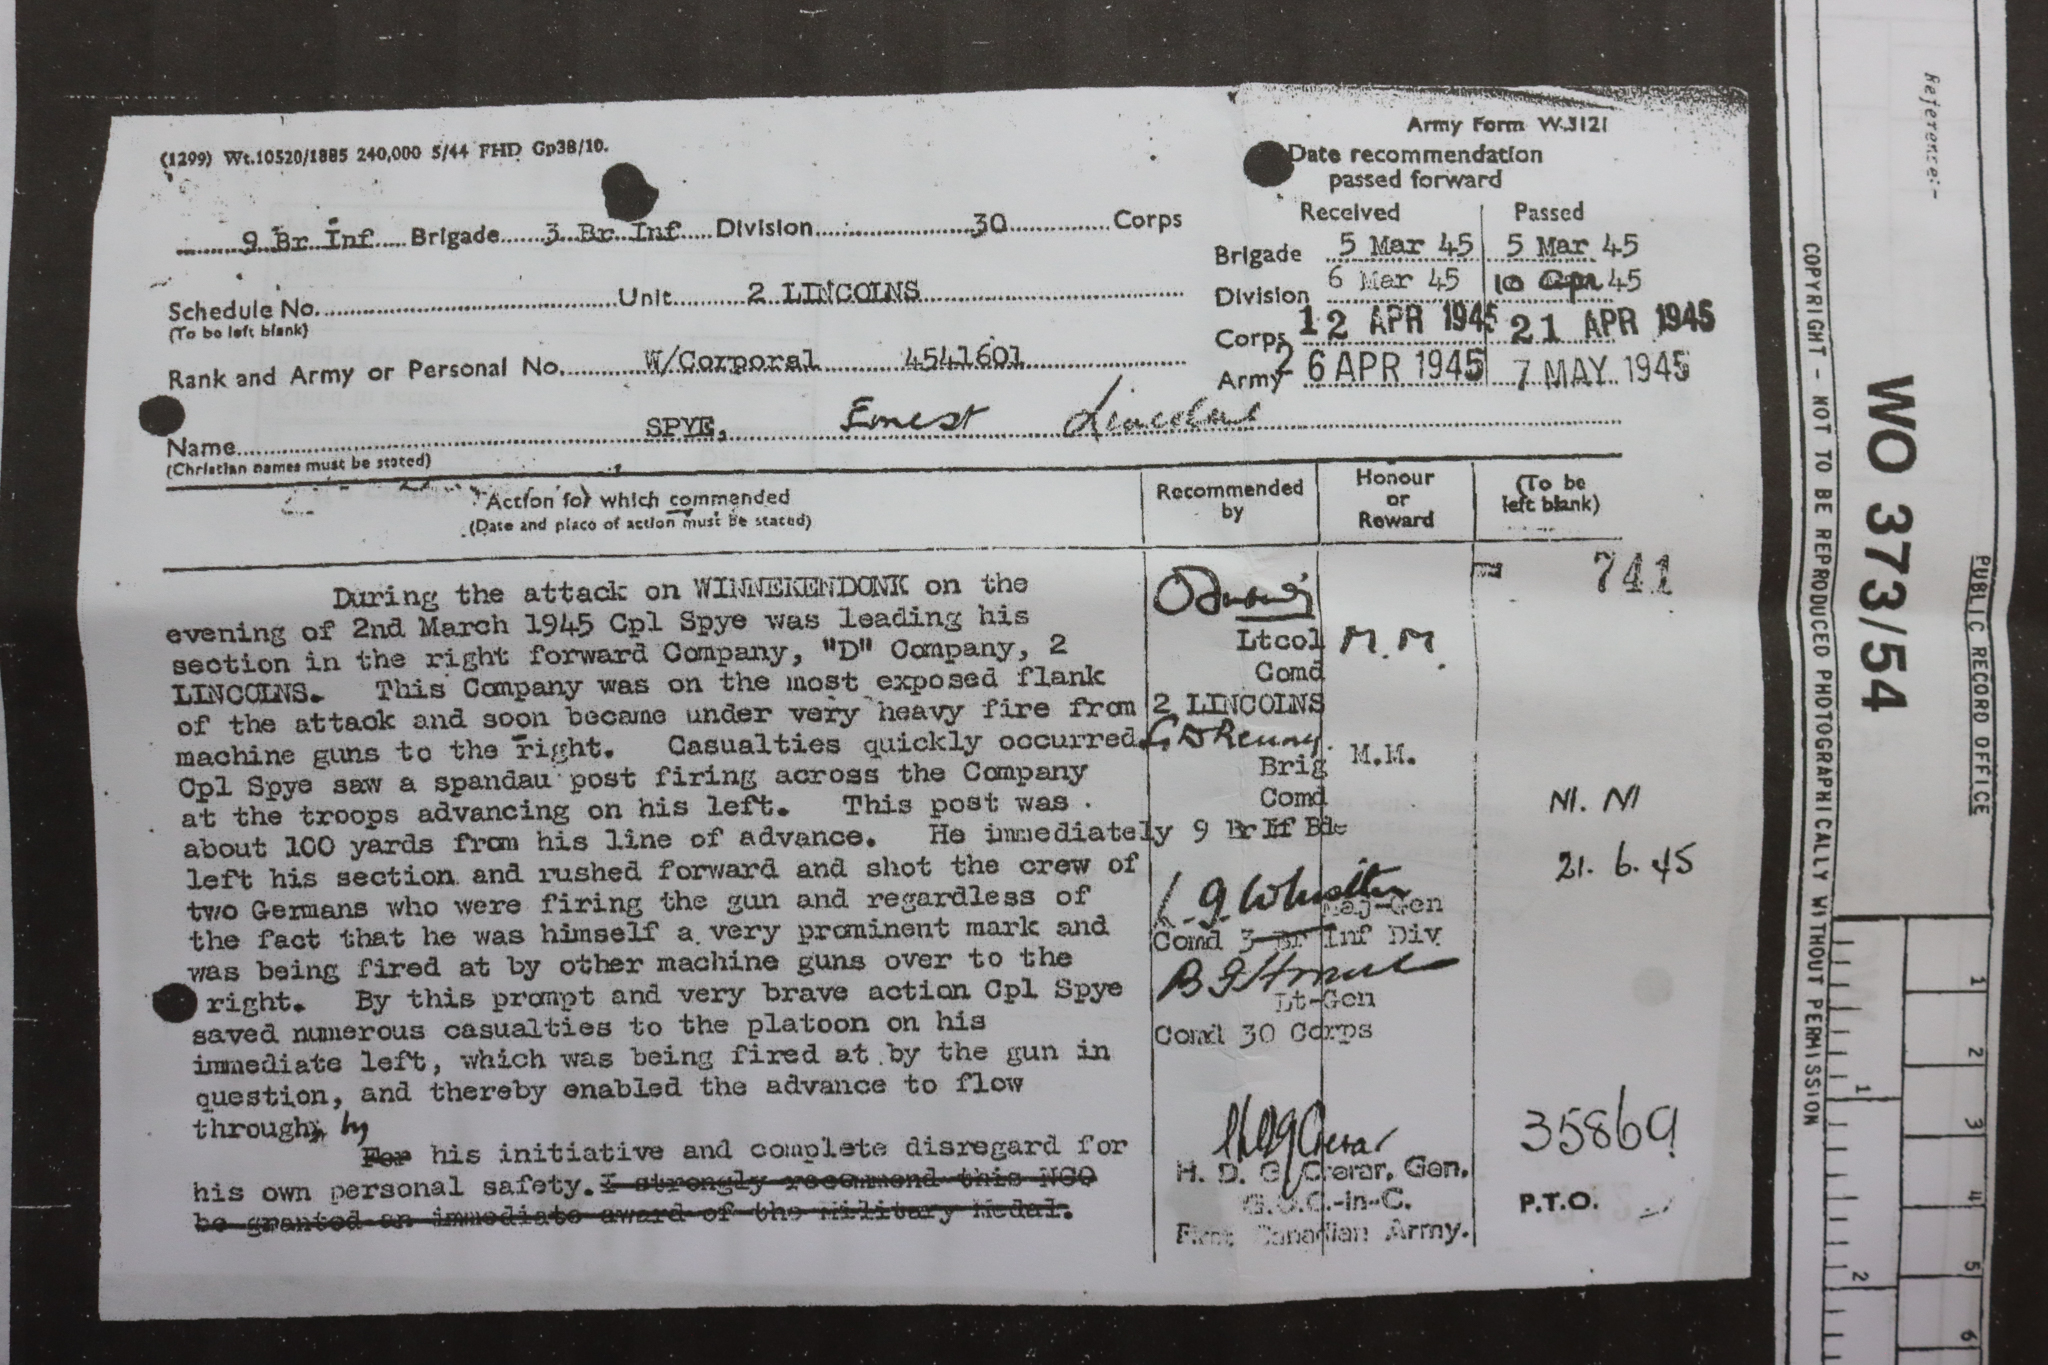 (1299) Wt.10520/1885 240,000 5/44 FHD Gp38/10.
Army Form W.3121
Date recommendation
passed forward
Received Passed
9 Br Inf Brigade 3 Br Inf Division 30 Corps
Brigade 5 Mar 45 5 Mar 45
Division 6 Mar 45 10 Apr 45
Schedule No. Unit 2 LINCOLNS
(To be left blank)
Corps 12 APR 1945 21 APR 1945
Rank and Army or Personal No. W/Corporal 4541601
Army 26 APR 1945 7 MAY 1945
Name SPYE, Ernest
(Christian names must be stated)
Action for which commended
(Date and place of action must be stated)
Recommended
by
Honour
or
Reward
(To be
left blank)
During the attack on WINNEKENDONK on the
evening of 2nd March 1945 Cpl Spye was leading his
section in the right forward Company, "D" Company, 2
LINCOLNS. This Company was on the most exposed flank
of the attack and soon became under very heavy fire from
machine guns to the right. Casualties quickly occurred.
Cpl Spye saw a spandau post firing across the Company
at the troops advancing on his left. This post was
about 100 yards from his line of advance. He immediately
left his section and rushed forward and shot the crew of
two Germans who were firing the gun and regardless of
the fact that he was himself a very prominent mark and
was being fired at by other machine guns over to the
right. By this prompt and very brave action Cpl Spye
saved numerous casualties to the platoon on his
immediate left, which was being fired at by the gun in
question, and thereby enabled the advance to flow
through, by
For his initiative and complete disregard for
his own personal safety. I strongly recommend this NCO
be granted an immediate award of the Military Medal.
Ltcol M.M.
Comd
2 LINCOLNS
G D Renny.
Brig M.M.
Comd
9 Br Inf Bde
L. G. Whistler
Maj-Gen
Comd 3 Br Inf Div
B G Horrocks
Lt-Gen
Comd 30 Corps
H D G Crerar
H. D. G. Crerar, Gen.
G.O.C.-in-C.
First Canadian Army.
741
M. M
21. 6. 45
35869
P.T.O.
Reference:-
WO 373/54
PUBLIC RECORD OFFICE
COPYRIGHT - NOT TO BE REPRODUCED PHOTOGRAPHICALLY WITHOUT PERMISSION
1
2
3
4
5
6
1
2